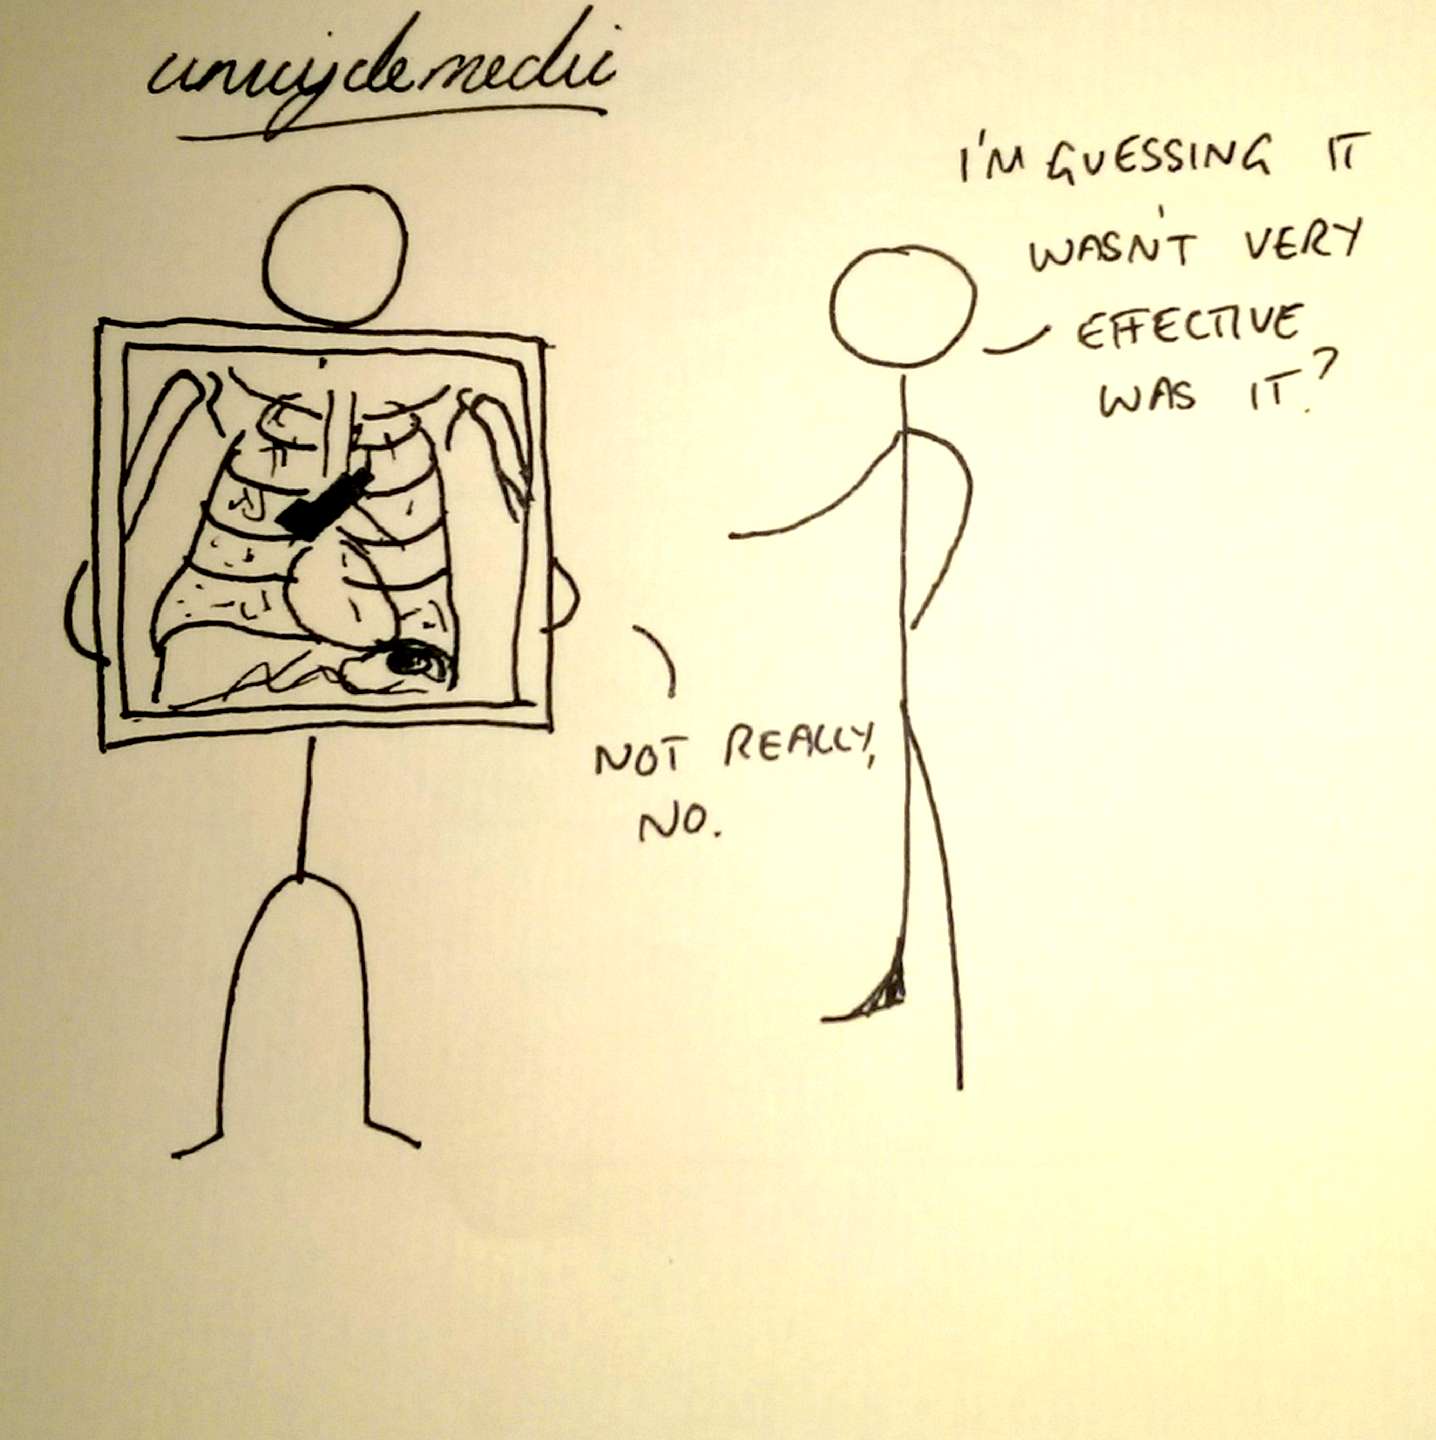 unicyclemedic
I'M GUESSING IT
WASN'T VERY
EFFECTIVE
WAS IT?
NOT REALLY,
NO.